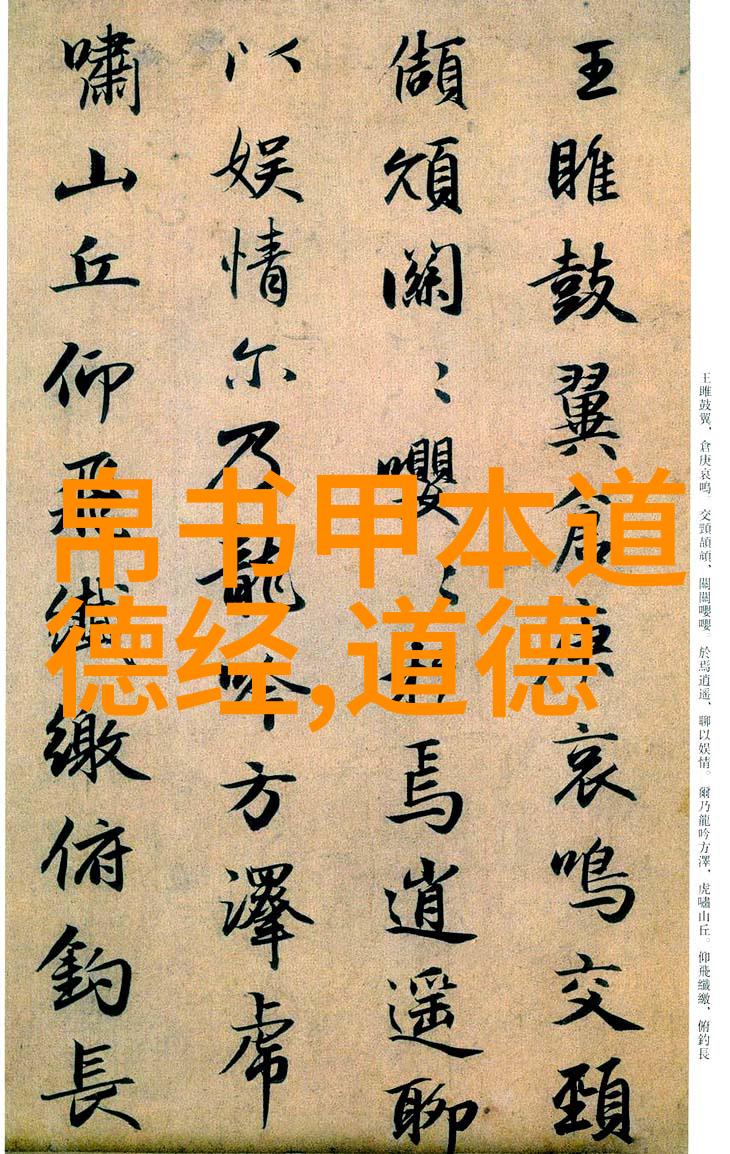 帛书甲本道
德经,道德
王雎鼓翼倉庚哀鳴交頸
頡頏關〻嚶〻於焉逍遥聊
以娱情尔乃龍吟方澤虎
嘯山丘仰飛纖繳俯釣長
王雎鼓翼、倉庚哀鳴。交頸頡頏、關關嚶嚶。於焉逍遥、聊以娱情。爾乃龍吟方澤、虎嘯山丘。仰飛纖繳、俯釣長